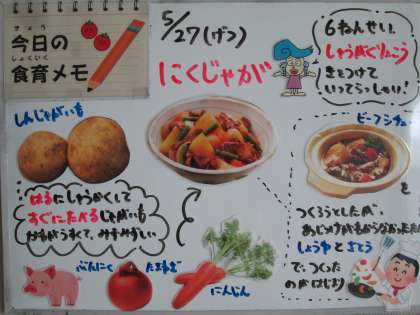 きょう
今日の
しょくいく
食育メモ
5/27(げつ)
にくじゃが
6ねんせい、
しゅうがくりょこう
きをつけて
いってらっしゃい!
しんじゃがいも
はるにしゅうかくして
すぐにたべるじゃがいも
かわがうすくて、みずみずしい
ぶたにく
たまねぎ
にんじん
ビーフシチュー
を
つくろうとしたが
あじつけがわからなかったため
しょうゆとさとう
で、つくった
のがはじまり